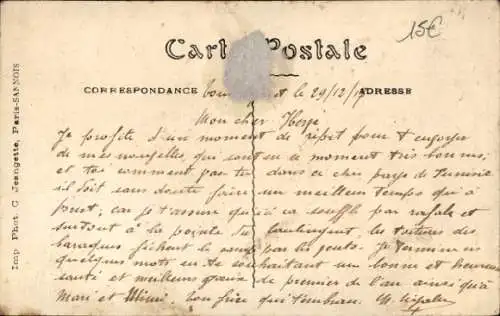 15€
Carte Postale
CORRESPONDANCE
ADRESSE
le 29/12/19
Mon cher
Je profite d'un moment de répit pour t'envoyer
de mes nouvelles qui sont en ce moment très bonnes
et toi comment vas tu dans ce cher pays de Tunisie
il doit sans doute faire un meilleur temps qu'à
car je t'assure qu'ici ça souffle par rafale et
surtout à la pointe du les toitures des
baraques fichent le camp par les Je termine ces
quelques mots en te souhaitant un bonne et heureuse
santé et meilleurs grains de premier de l'an ainsi qu'à
Mari et Mimi. ton frère qui t'embrasse.
Imp. Phot. C. Jeangette, Paris-SANNOIS